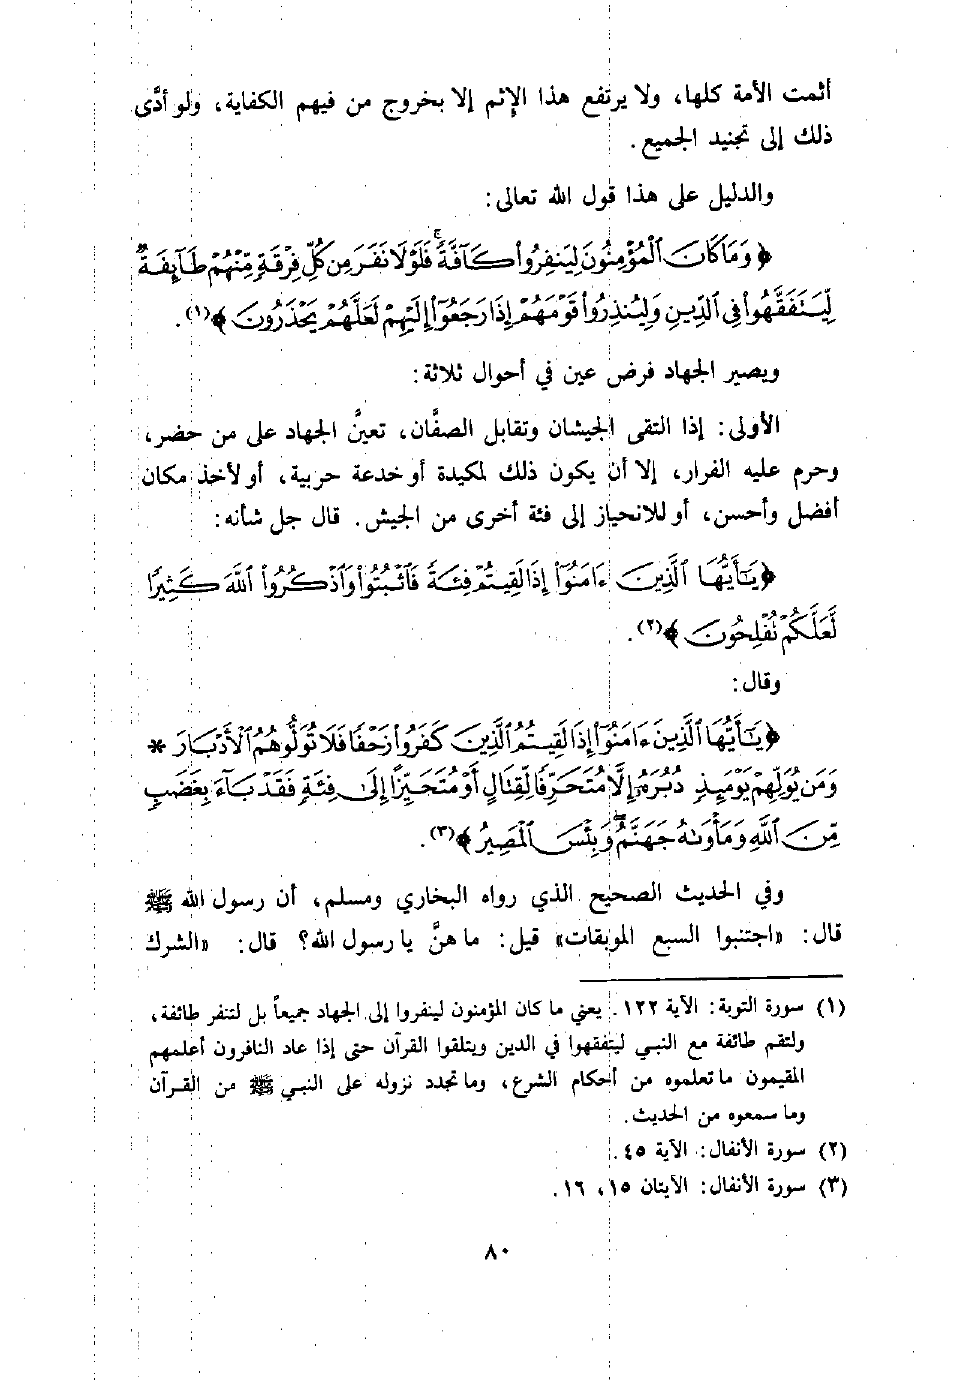 أثمت الأمة كلها، ولا يرتفع هذا الإثم إلا بخروج من فيهم الكفاية، ولو أدَّى
ذلك إلى تجنيد الجميع.
والدليل على هذا قول الله تعالى:
﴿وَمَا كَانَ ٱلْمُؤْمِنُونَ لِيَنفِرُوا۟ كَآفَّةً ۚ فَلَوْلَا نَفَرَ مِن كُلِّ فِرْقَةٍ مِّنْهُمْ طَآئِفَةٌ
لِّيَتَفَقَّهُوا۟ فِى ٱلدِّينِ وَلِيُنذِرُوا۟ قَوْمَهُمْ إِذَا رَجَعُوٓا۟ إِلَيْهِمْ لَعَلَّهُمْ يَحْذَرُونَ﴾(١).
ويصير الجهاد فرض عين في أحوال ثلاثة:
الأولى: إذا التقى الجيشان وتقابل الصفَّان، تعينَّ الجهاد على من حضر،
وحرم عليه الفرار، إلا أن يكون ذلك لمكيدة أو خدعة حربية، أو لأخذ مكان
أفضل وأحسن، أو للانحياز إلى فئة أخرى من الجيش. قال جل شأنه:
﴿يَـٰٓأَيُّهَا ٱلَّذِينَ ءَامَنُوٓا۟ إِذَا لَقِيتُمْ فِئَةً فَٱثْبُتُوا۟ وَٱذْكُرُوا۟ ٱللَّهَ كَثِيرًا
لَّعَلَّكُمْ تُفْلِحُونَ﴾(٢).
وقال:
﴿يَـٰٓأَيُّهَا ٱلَّذِينَ ءَامَنُوٓا۟ إِذَا لَقِيتُمُ ٱلَّذِينَ كَفَرُوا۟ زَحْفًا فَلَا تُوَلُّوهُمُ ٱلْأَدْبَارَ *
وَمَن يُوَلِّهِمْ يَوْمَئِذٍ دُبُرَهُۥٓ إِلَّا مُتَحَرِّفًا لِّقِتَالٍ أَوْ مُتَحَيِّزًا إِلَىٰ فِئَةٍ فَقَدْ بَآءَ بِغَضَبٍ
مِّنَ ٱللَّهِ وَمَأْوَىٰهُ جَهَنَّمُ ۖ وَبِئْسَ ٱلْمَصِيرُ﴾(٣).
وفي الحديث الصحيح الذي رواه البخاري ومسلم، أن رسول الله ﷺ
قال: «اجتنبوا السبع الموبقات» قيل: ما هنَّ يا رسول الله؟ قال: «الشرك
(١) سورة التوبة: الآية ١٢٢. يعني ما كان المؤمنون لينفروا إلى الجهاد جميعاً بل لتنفر طائفة،
ولتقم طائفة مع النبي ليتفقهوا في الدين ويتلقوا القرآن حتى إذا عاد النافرون أعلمهم
المقيمون ما تعلموه من أحكام الشرع، وما تجدد نزوله على النبي ﷺ من القرآن
وما سمعوه من الحديث.
(٢) سورة الأنفال: الآية ٤٥.
(٣) سورة الأنفال: الآيتان ١٥، ١٦.
٨٠